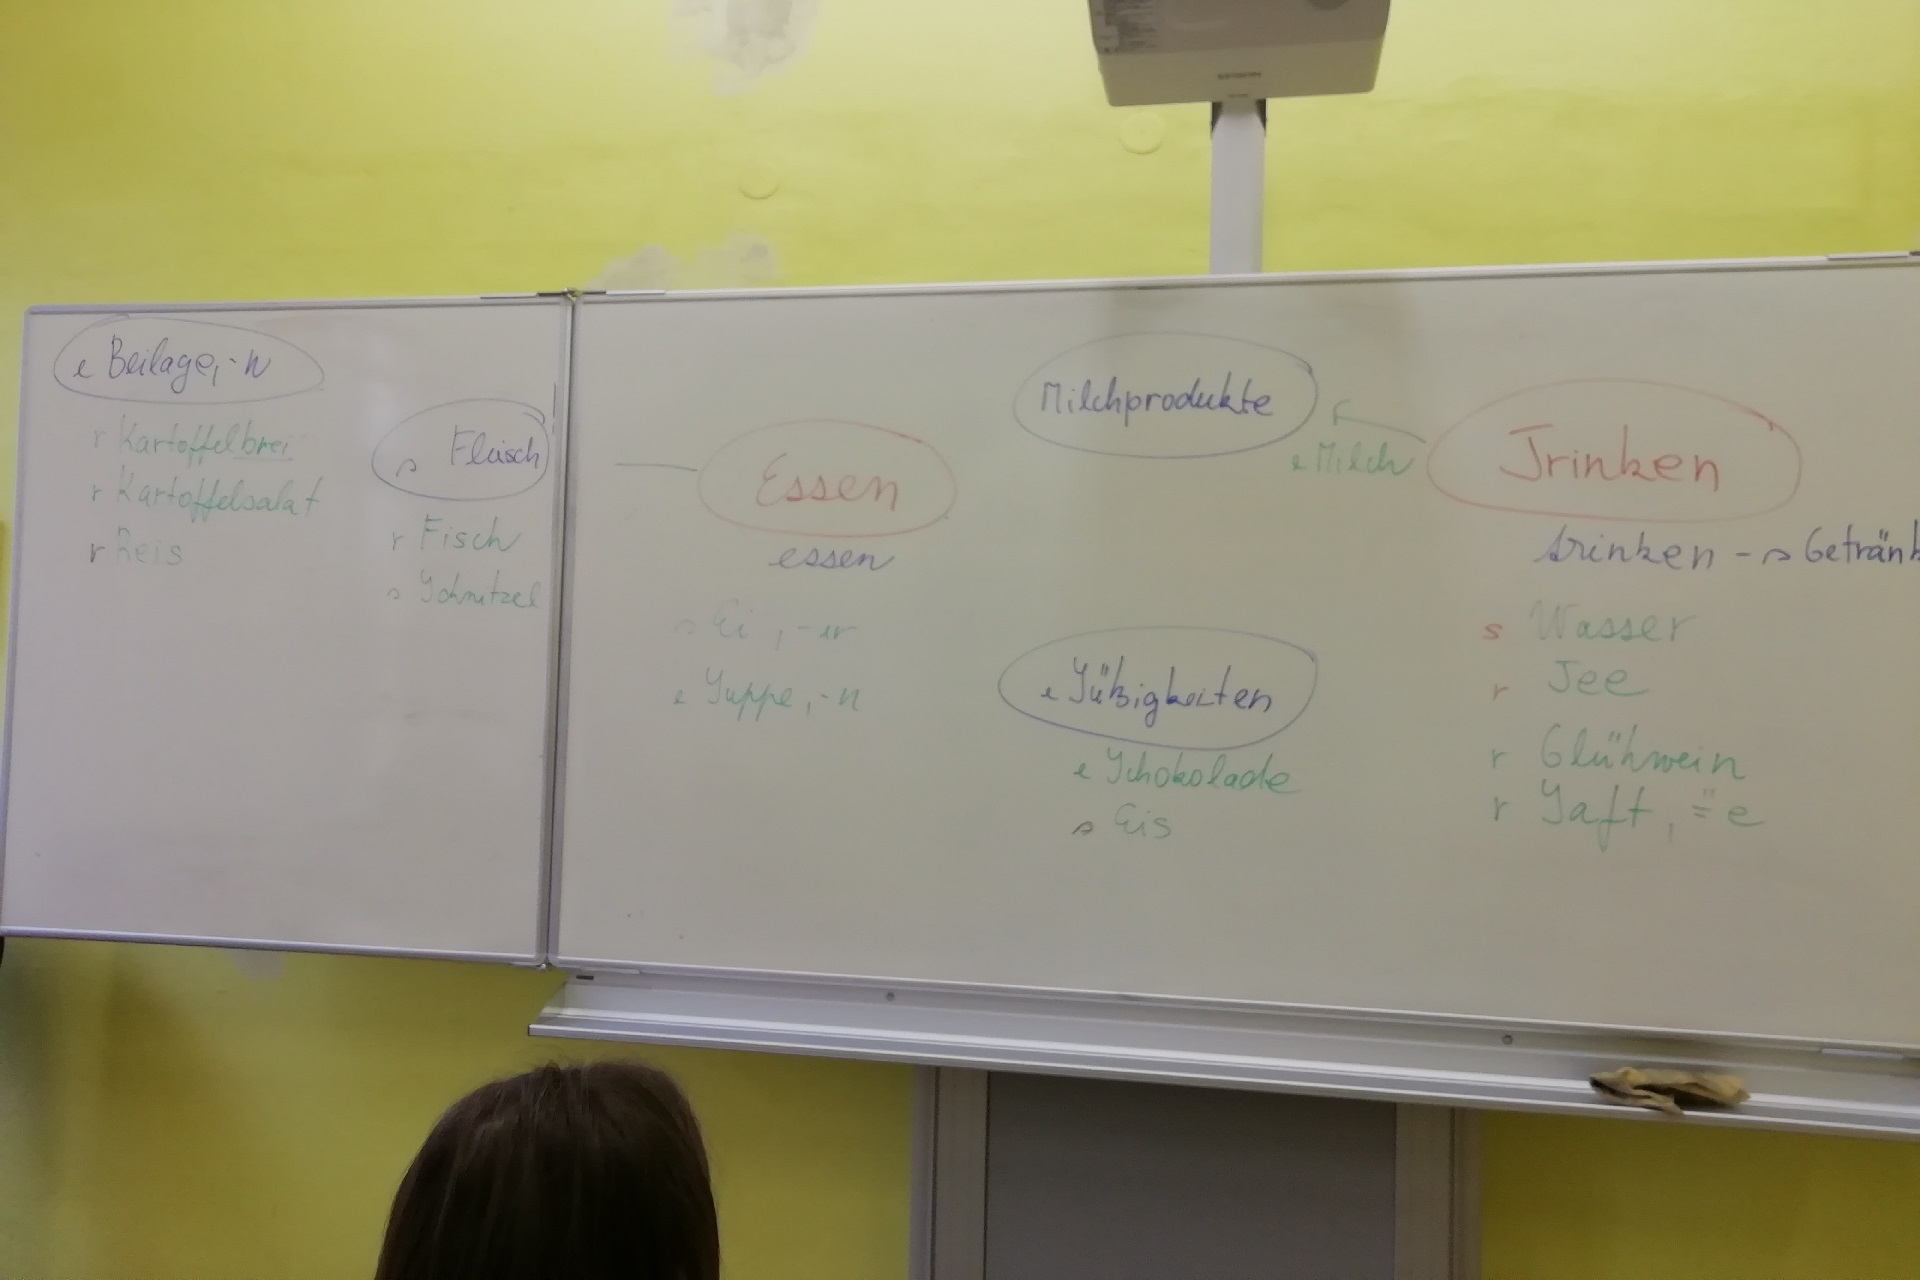 EPSON
e Beilage, -n
r Kartoffelbrei
r Kartoffelsalat
r Reis
s Fleisch
r Fisch
s Schnitzel
Essen
essen
s Ei, -er
e Suppe, -n
Milchprodukte
e Milch
e Süßigkeiten
e Schokolade
s Eis
Trinken
trinken - s Getränk
s Wasser
r Tee
r Glühwein
r Saft, ⸚e